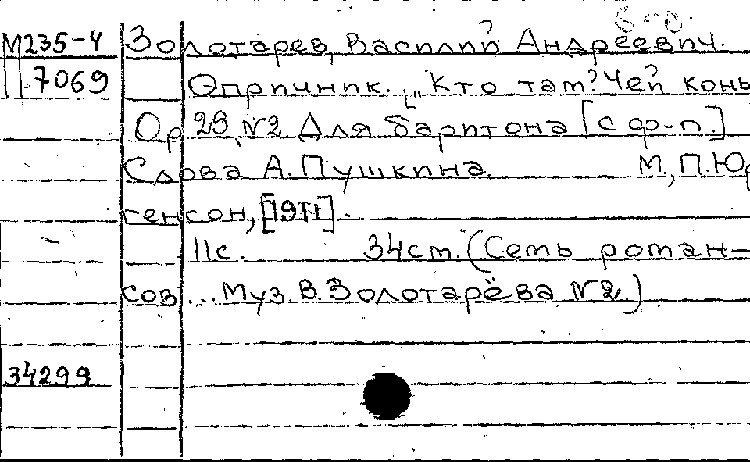 М235-4 Золотарев, Василий Андреевич.
7069 Опричник. „Кто там? Чей конь
Ор. 28, №2 Для баритона [с ф-п.]
Слова А. Пушкина. М., П. Юр
генсон, [1911].
11с. 34см. (Семь роман-
сов... Муз. В. Золотарёва №2.)
34299